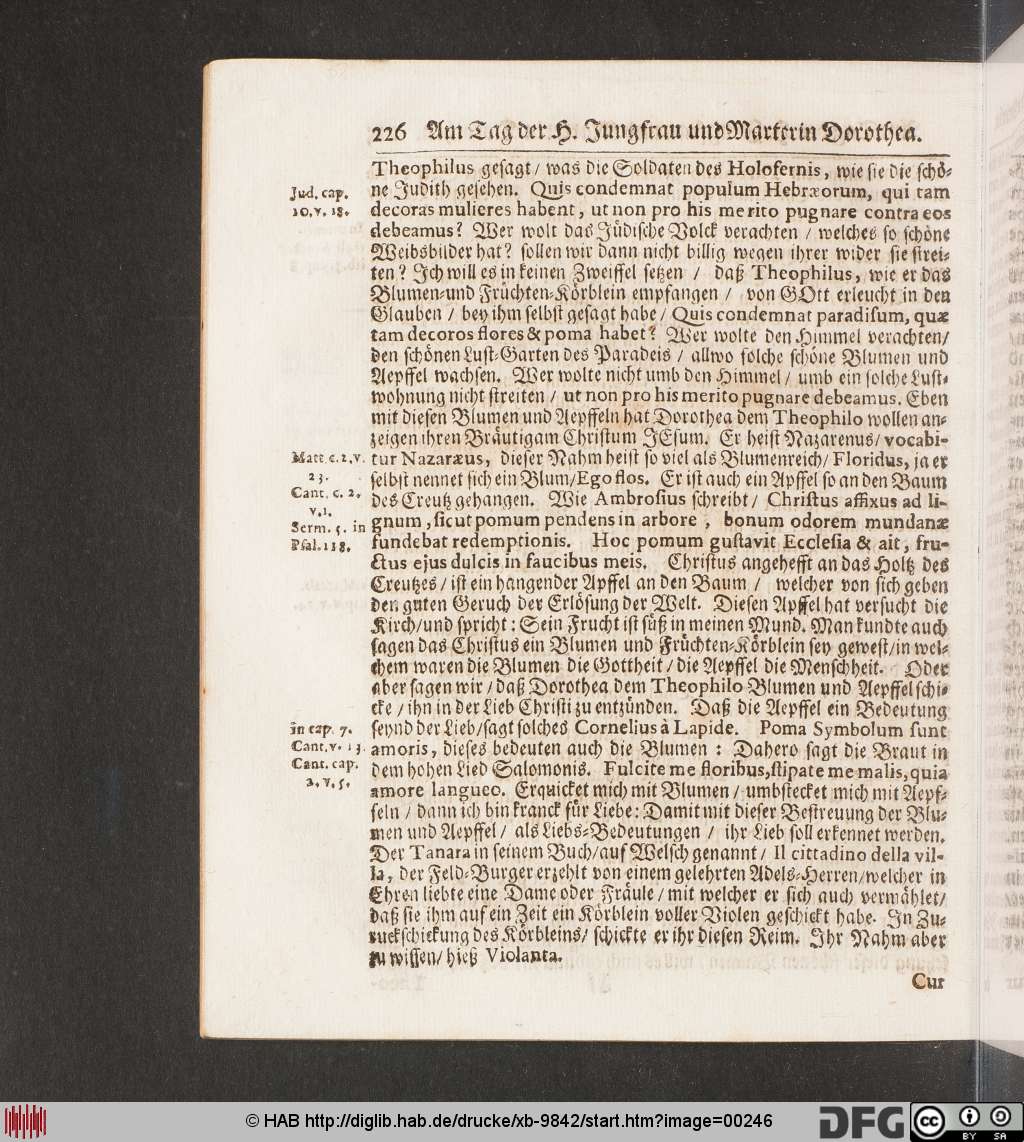 226 Am Tag der H. Jungfrau und Marterin Dorothea.
Theophilus gesagt / was die Soldaten des Holofernis, wie sie die schö-
ne Judith gesehen. Quis condemnat populum Hebræorum, qui tam
decoras mulieres habent, ut non pro his merito pugnare contra eos
debeamus? Wer wolt das Jüdische Volck verachten / welches so schöne
Weibsbilder hat? sollen wir dann nicht billig wegen ihrer wider sie strei-
ten? Ich will es in keinen Zweiffel setzen / daß Theophilus, wie er das
Blumen-und Früchten-Körblein empfangen / von GOtt erleucht in den
Glauben / bey ihm selbst gesagt habe / Quis condemnat paradisum, quæ
tam decoros flores & poma habet? Wer wolte den Himmel verachten/
den schönen Lust-Garten des Paradeis / allwo solche schöne Blumen und
Aepffel wachsen. Wer wolte nicht umb den Himmel / umb ein solche Lust-
wohnung nicht streiten / ut non pro his merito pugnare debeamus. Eben
mit diesen Blumen und Aepffeln hat Dorothea dem Theophilo wollen an-
zeigen ihren Bräutigam Christum JEsum. Er heist Nazarenus/ vocabi-
tur Nazaræus, dieser Nahm heist so viel als Blumenreich/ Floridus, ja er
selbst nennet sich ein Blum/Ego flos. Er ist auch ein Apffel so an den Baum
des Creutz gehangen. Wie Ambrosius schreibt/ Christus affixus ad li-
gnum, sicut pomum pendens in arbore, bonum odorem mundanæ
fundebat redemptionis. Hoc pomum gustavit Ecclesia & ait, fru-
ctus ejus dulcis in faucibus meis. Christus angehefft an das Holtz des
Creutzes / ist ein hangender Apffel an den Baum / welcher von sich geben
den guten Geruch der Erlösung der Welt. Diesen Apffel hat versucht die
Kirch/und spricht: Sein Frucht ist süß in meinen Mund. Man kundte auch
sagen das Christus ein Blumen und Früchten-Körblein sey gewest/in wel-
chem waren die Blumen die Gottheit / die Aepffel die Menschheit. Oder
aber sagen wir / daß Dorothea dem Theophilo Blumen und Aepffel schi-
cke / ihn in der Lieb Christi zu entzünden. Daß die Aepffel ein Bedeutung
seynd der Lieb/sagt solches Cornelius à Lapide. Poma Symbolum sunt
amoris, dieses bedeuten auch die Blumen: Dahero sagt die Braut in
dem hohen Lied Salomonis. Fulcite me floribus, stipate me malis, quia
amore langueo. Erquicket mich mit Blumen / umbstecket mich mit Aepf-
feln / dann ich bin kranck für Liebe: Damit mit dieser Bestreuung der Blu-
men und Aepffel / als Liebs-Bedeutungen / ihr Lieb soll erkennet werden.
Der Tanara in seinem Buch/auf Welsch genannt/ Il cittadino della vil-
la, der Feld-Burger erzehlt von einem gelehrten Adels-Herren/welcher in
Ehren liebte eine Dame oder Fräule / mit welcher er sich auch vermählet/
daß sie ihm auf ein Zeit ein Körblein voller Violen geschickt habe. In Zu-
ruckschickung des Körbleins/ schickte er ihr diesen Reim. Ihr Nahm aber
zu wissen/ hieß Violanta.
Cur
Jud. cap.
10. v. 18.
Matt. c. 2. v.
23.
Cant. c. 2.
v. 1.
Serm. 5. in
Psal. 118.
in cap. 7.
Cant. v. 13.
Cant. cap.
2. v. 5.
© HAB http://diglib.hab.de/drucke/xb-9842/start.htm?image=00246
DFG
cc
BY
SA